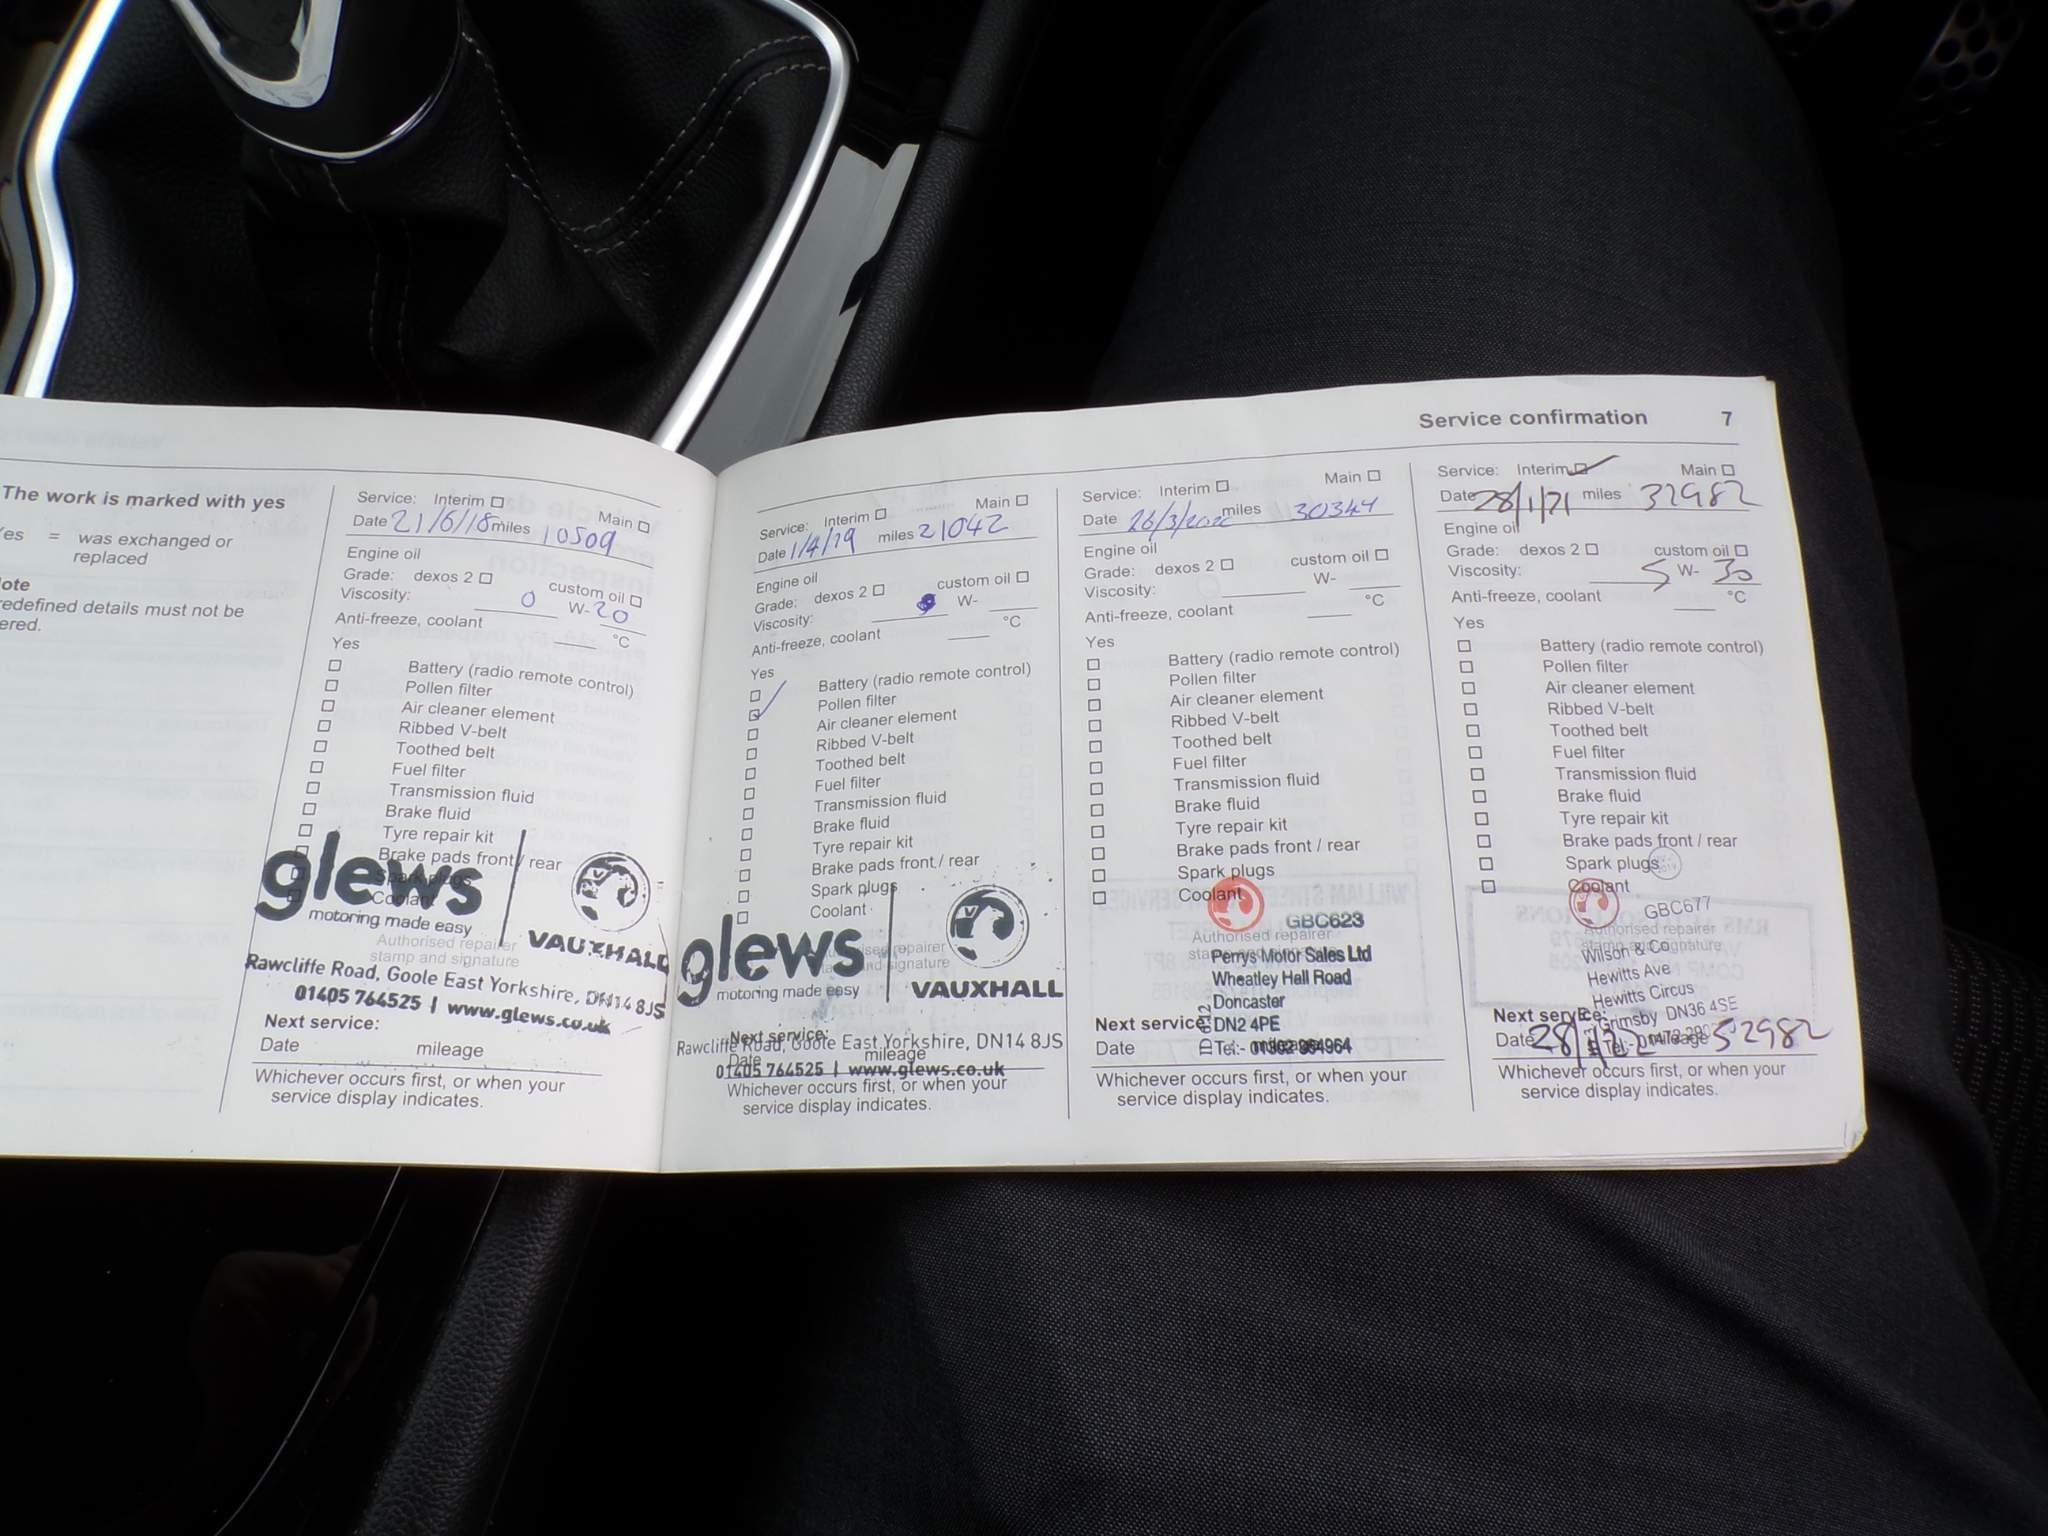 Service confirmation 7
The work is marked with yes
= was exchanged or
replaced
redefined details must not be
Service: Interim
Main
Date 21/6/18 miles 10509
Engine oil
Grade: dexos 2
custom oil
Viscosity: 0 W- 20
Anti-freeze, coolant °C
Yes
Battery (radio remote control)
Pollen filter
Air cleaner element
Ribbed V-belt
Toothed belt
Fuel filter
Transmission fluid
Brake fluid
Tyre repair kit
Brake pads front / rear
Spark plugs
Coolant
glews
motoring made easy
VAUXHALL
Authorised repairer
stamp and signature
Rawcliffe Road, Goole East Yorkshire, DN14 8JS
01405 764525 | www.glews.co.uk
Next service:
Date mileage
Whichever occurs first, or when your
service display indicates.
Service: Interim
Main
Date 1/4/19 miles 21042
Engine oil
Grade: dexos 2
custom oil
Viscosity: W-
Anti-freeze, coolant °C
Yes
Battery (radio remote control)
Pollen filter
Air cleaner element
Ribbed V-belt
Toothed belt
Fuel filter
Transmission fluid
Brake fluid
Tyre repair kit
Brake pads front / rear
Spark plugs
Coolant
glews
motoring made easy
VAUXHALL
Authorised repairer
stamp and signature
Next service:
Rawcliffe Road, Goole East Yorkshire, DN14 8JS
Date mileage
01405 764525 | www.glews.co.uk
Whichever occurs first, or when your
service display indicates.
Service: Interim Main
Date 26/3/2020 miles 30344
Engine oil
Grade: dexos 2 custom oil
Viscosity: W-
Anti-freeze, coolant °C
Yes
Battery (radio remote control)
Pollen filter
Air cleaner element
Ribbed V-belt
Toothed belt
Fuel filter
Transmission fluid
Brake fluid
Tyre repair kit
Brake pads front / rear
Spark plugs
Coolant
GBC623
Authorised repairer
stamp and signature
Perrys Motor Sales Ltd
Wheatley Hall Road
Doncaster
Next service: DN2 4PE
Date mileage
Tel:- 01302 364964
Whichever occurs first, or when your
service display indicates.
Service: Interim Main
Date 28/1/21 miles 32982
Engine oil
Grade: dexos 2 custom oil
Viscosity: 5 W- 30
Anti-freeze, coolant °C
Yes
Battery (radio remote control)
Pollen filter
Air cleaner element
Ribbed V-belt
Toothed belt
Fuel filter
Transmission fluid
Brake fluid
Tyre repair kit
Brake pads front / rear
Spark plugs
Coolant
GBC677
Authorised repairer
stamp and signature
Wilson & Co
Hewitts Ave
Hewitts Circus
Grimsby DN36 4SE
Next service:
Date 28/1/22 mileage 52982
Whichever occurs first, or when your
service display indicates.